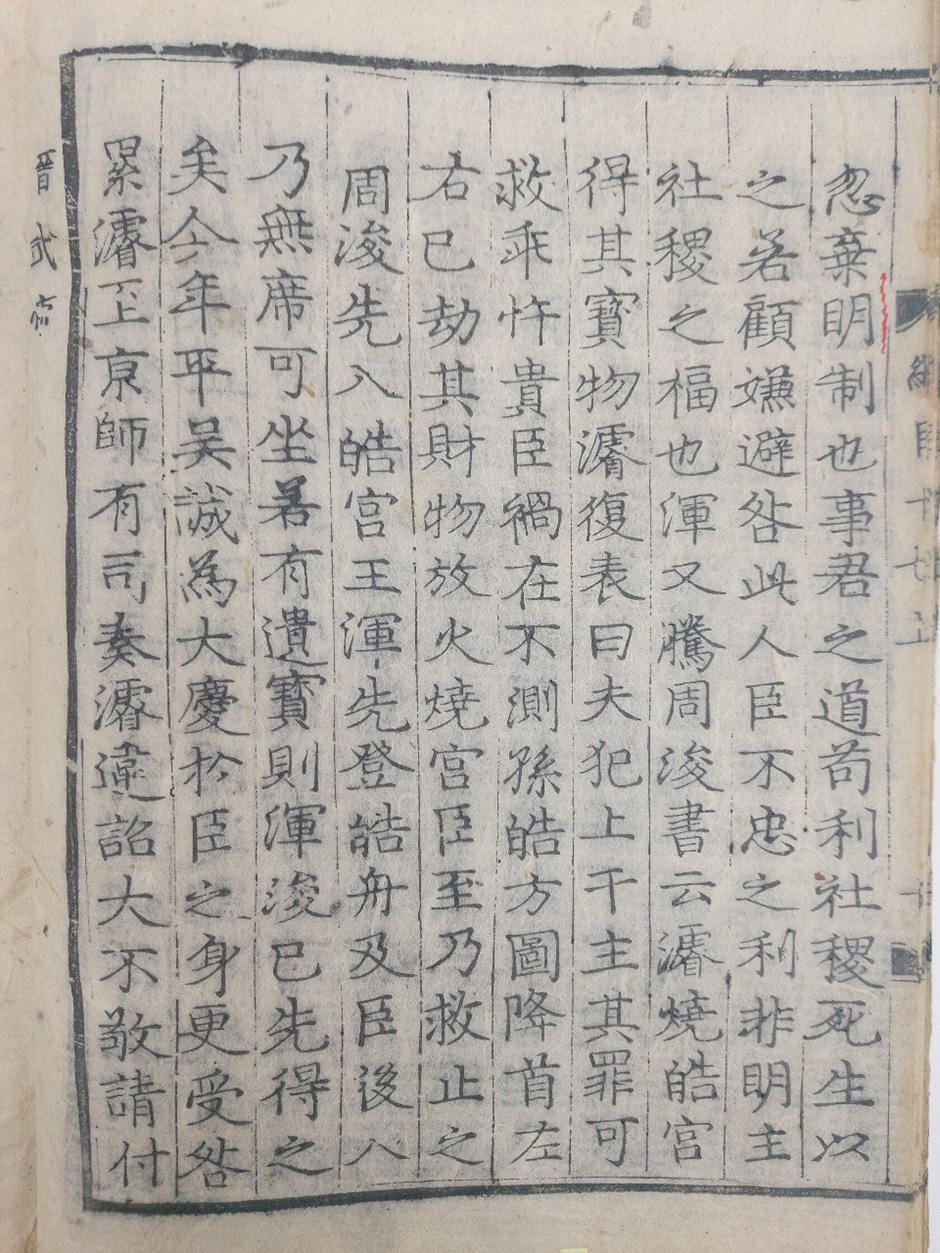 忽棄明制也事君之道苟利社稷死生以
之若顧嫌避咎此人臣不忠之利非明主
社稷之福也渾又騰周浚書云濬燒皓宮
得其寶物濬復表曰夫犯上干主其罪可
救乖忤貴臣禍在不測孫皓方圖降首左
右已劫其財物放火燒宮臣至乃救止之
周浚先入皓宮王渾先登皓舟及臣後入
乃無席可坐若有遺寶則渾浚已先得之
矣今年平吳誠為大慶於臣之身更受咎
累濬至京師有司奏濬違詔大不敬請付
晉武帝